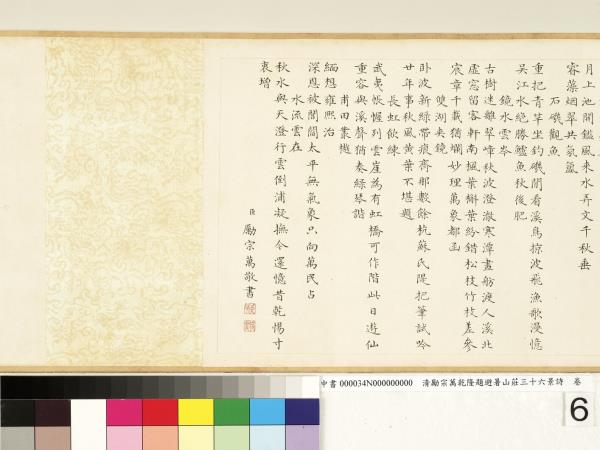 月上池間鑑風來水弄文千秋垂
睿藻烟翠共氛氳
石磯觀魚
重把青竿坐釣磯閒看溪鳥掠波飛漁歌漫憶
吳江水絶勝鱸魚秋後肥
鏡水雲岑
古樹迷離翠嶂秋波澄澈寒潭畫舫渡人溪北
虛窓留客軒南楓葉槲葉紛錯松枝竹枝差參
宸章千載猶爛妙理萬象都函
雙湖夾鏡
卧波新綠帶痕齊那數餘杭蘇氏隄把筆試吟
廿年事秋風黃葉不堪題
長虹飲練
武夷帳幄列雲崖為有虹橋可作階此日遊仙
重容與溪聲猶奏綠琴諧
甫田叢樾
緬想雍熙治
深恩被閭閻太平無氣象只向萬民占
水流雲在
秋水與天澄行雲倒浦凝撫今還憶昔乾惕寸
衷增
臣勵宗萬敬書
中書 000034N000000000 清勵宗萬乾隆題避暑山莊三十六景詩 卷
6